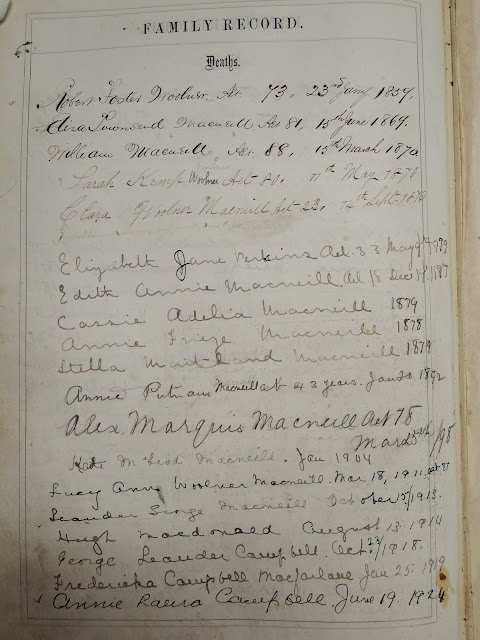 FAMILY RECORD.
Deaths.
Robert Foster Woolner. Aet 73, 23rd Jany 1859.
Eliza Townsend Macneill Aet 81, 15th June 1869.
William Macneill Aet. 88, 15th March 1870
Sarah Kemp Woolner Aet 80. 11th May 1876
Clara Woolner Macneill Aet 23, 14th Sept. 1876
Elizabeth Jane Perkins Aet. 33 May 1879
Edith Annie Macneill Aet 18 Dec
Cassie Adelia Macneill 1879
Annie Macneill 1878
Stella Maitland Macneill 1879
Annie Putnam Macneill aet 43 years. Jan 1892
Alex Marquis Macneill Aet 78
Mar 5th /98
Kate McLeod Macneill. Jan 1904
Lucy Ann Woolner Macneill. Mar 18, 1911. aet
Leander George Macneill October 15/1913.
Hugh Macdonald August 13 1914
George Leander Campbell. Oct. 1918.
Frederica Campbell Macfarlane Jan 25 1919
Annie Laura Campbell. June 19. 1924